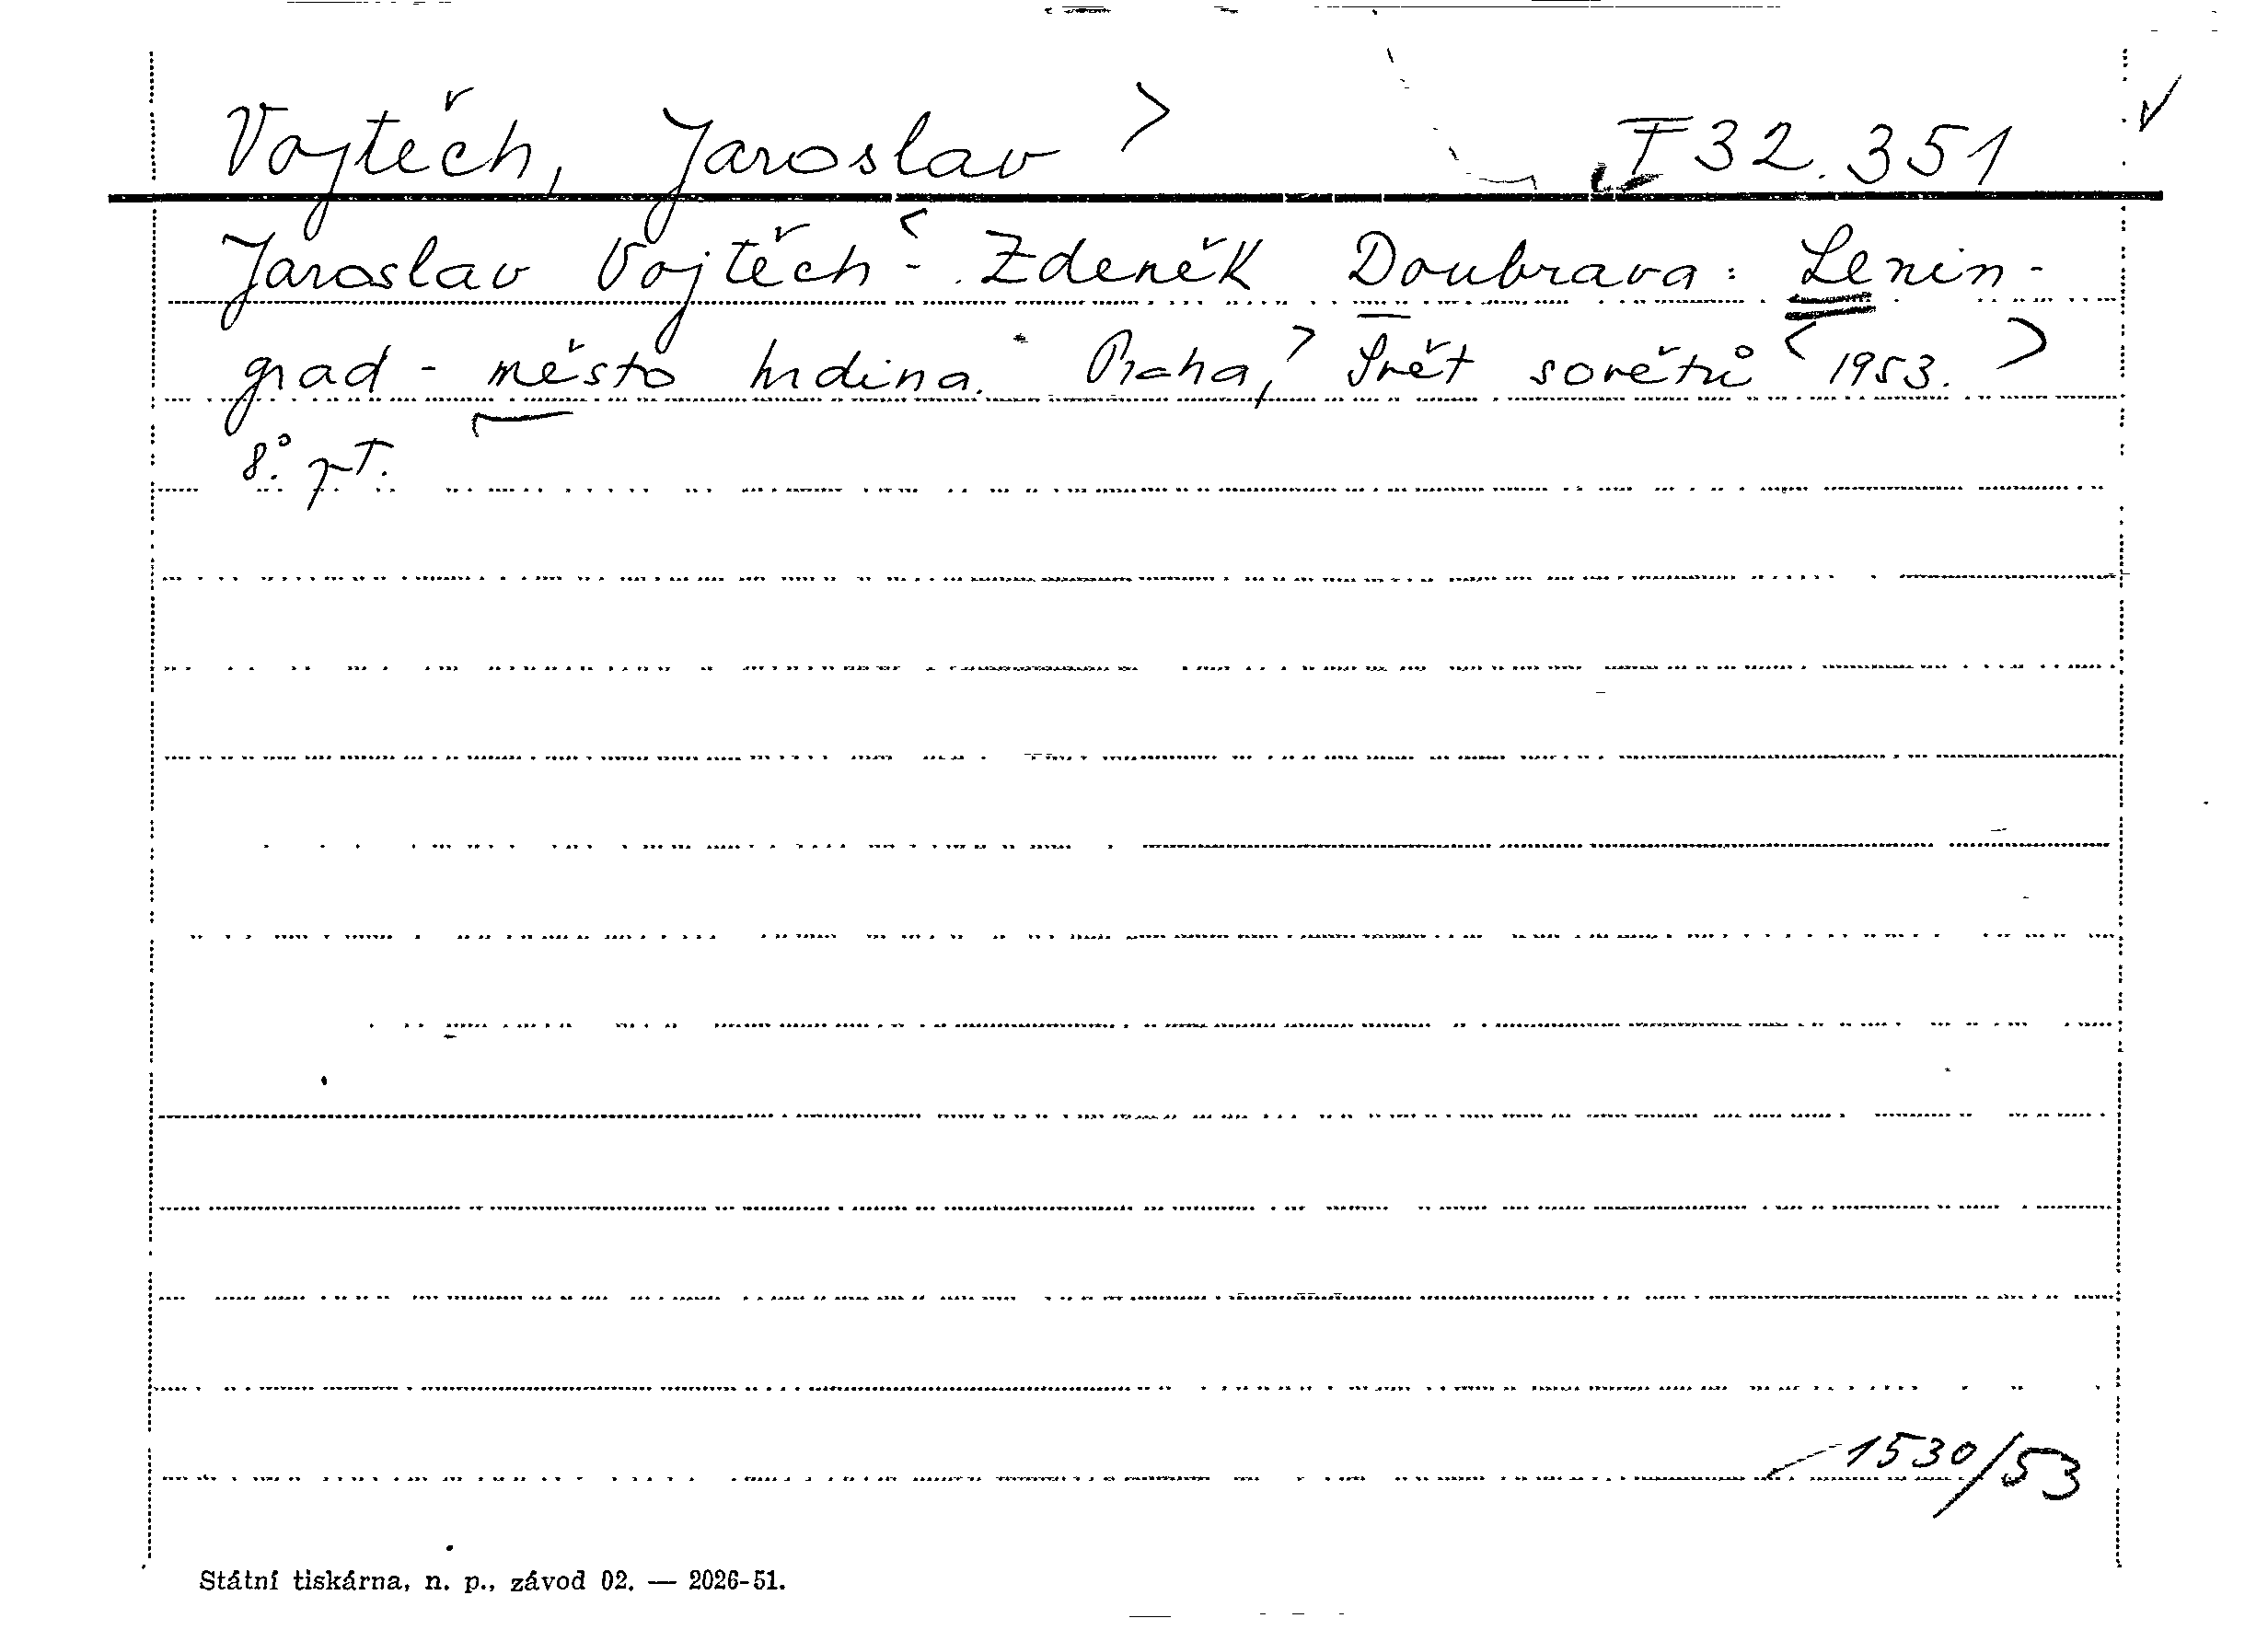 Vojtěch, Jaroslav > I 32.351
Jaroslav Vojtěch - Zdeněk Doubrava: Lenin-
grad - město hrdina. Praha, Svět sovětů 1953.
8°.
1530/53
Státní tiskárna, n. p., závod 02. — 2026-51.